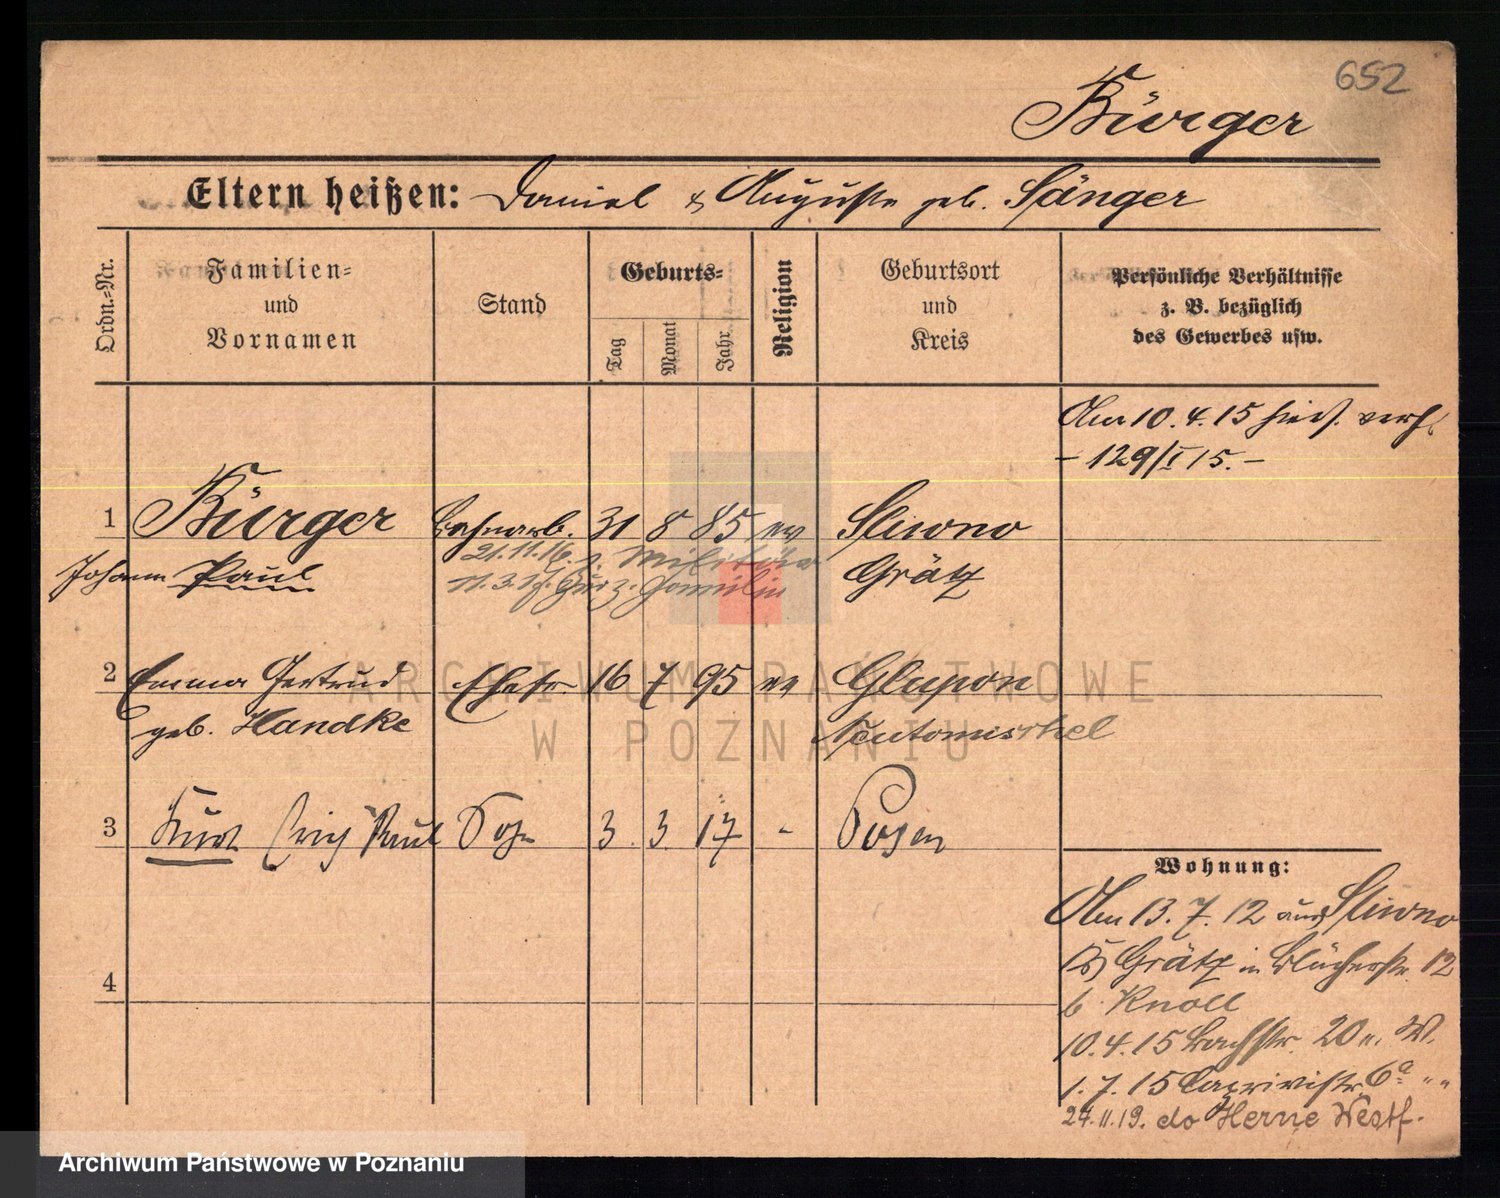 652
Bürger
Eltern heißen: Daniel & Auguste geb. Sänger
Ordn.=Nr.
Familien=
und
Vornamen
Stand
Geburts=
Tag
Monat
Jahr
Religion
Geburtsort
und
Kreis
Persönliche Verhältnisse
z. B. bezüglich
des Gewerbes usw.
Am 10.4.15 hies. verh.
- 129/I 15. -
1 Bürger Bahnarb. 31 8 85 ev Sliwno
21.11.16. z. Militär
Johann Paul Grätz
11.3. zur z. Familie
2 Emma Gertrud Ehefr. 16 7 95 ev Glupon
geb. Handke Neutomischel
3 Kurt Erich Paul Sohn 3 3 17 - Posen
4
Wohnung:
Am 13.7.12 aus Sliwno
Grätz in Blücherstr. 12
b. Knoll
10.4.15 Bachstr. 20 n. W.
1.7.15 Caprivistr. 6a " "
27.11.19. do Herne Westf.
ARCHIWUM PAŃSTWOWE
W POZNANIU
Archiwum Państwowe w Poznaniu